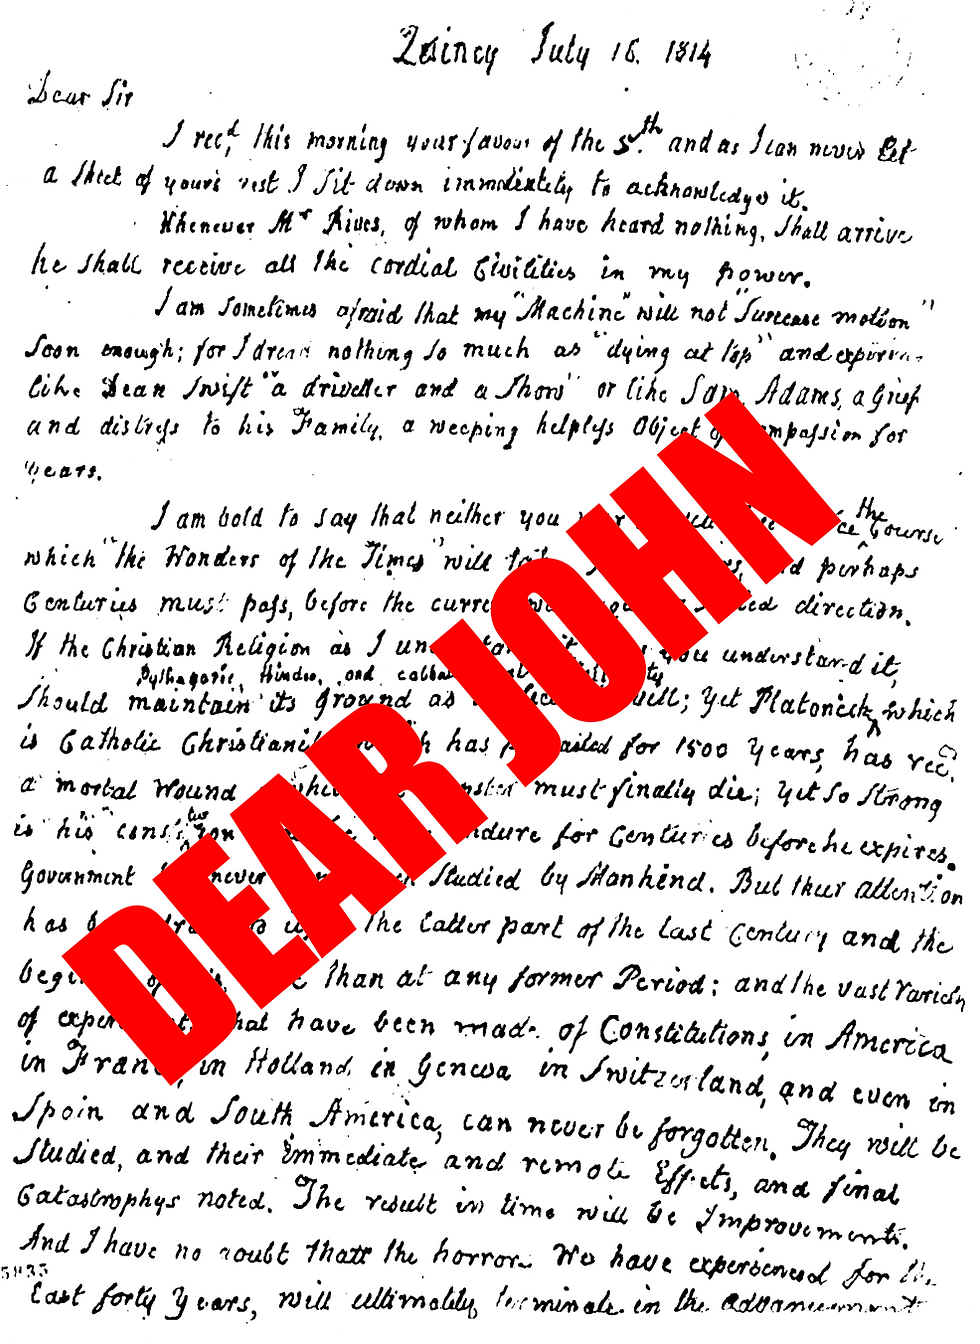 Quincy July 16. 1814
Dear Sir
I recd. this morning your favour of the 5.th and as I can never let
a sheet of yours rest I sit down immediately to acknowledge it.
Whenever Mr Rives, of whom I have heard nothing, shall arrive
he shall receive all the cordial Civilities in my power.
I am sometimes afraid that my "Machine" will not "Surcease motion"
soon enough; for I dread nothing so much as "dying at top" and
like Dean Swift "a driveller and a Show" or like Sam Adams, a Grief
and distress to his Family, a weeping helpless Object of compassion for
years.
I am bold to say that neither you the
Course
which "the Wonders of the Times" will and perhaps
Centuries must pass, before the direction.
If the Christian Religion as I you understand it,
Pythagoric, Hindoo, and
should maintain its ground as well; yet Platonick which
is Catholic has for 1500 years, has recd.
a mortal wound must finally die; yet so strong
is his endure for Centuries before he expires.
Government never studied by Mankind. But their attention
has the latter part of the last Century and the
than at any former Period: and the vast Variety
of that have been made of Constitutions, in America
in in Holland, in Geneva in Switzerland, and even in
Spain and South America, can never be forgotten. They will be
studied, and their immediate and remote Effects, and final
Catastrophys noted. The result in time will be Improvements.
And I have no doubt that the horrors We have experienced for the
last forty Years, will ultimately terminate in the advancement
DEAR JOHN